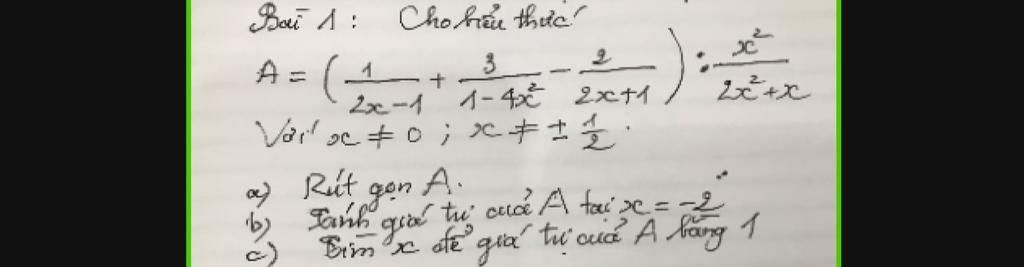 Bài 1 : Cho biểu thức
A = ( 1/(2x-1) + 3/(1-4x²) - 2/(2x+1) ) : x²/(2x²+x)
Với x ≠ 0 ; x ≠ ± 1/2 .
a) Rút gọn A.
b) Tính giá trị của A tại x = -2
c) Tìm x để giá trị của A bằng 1